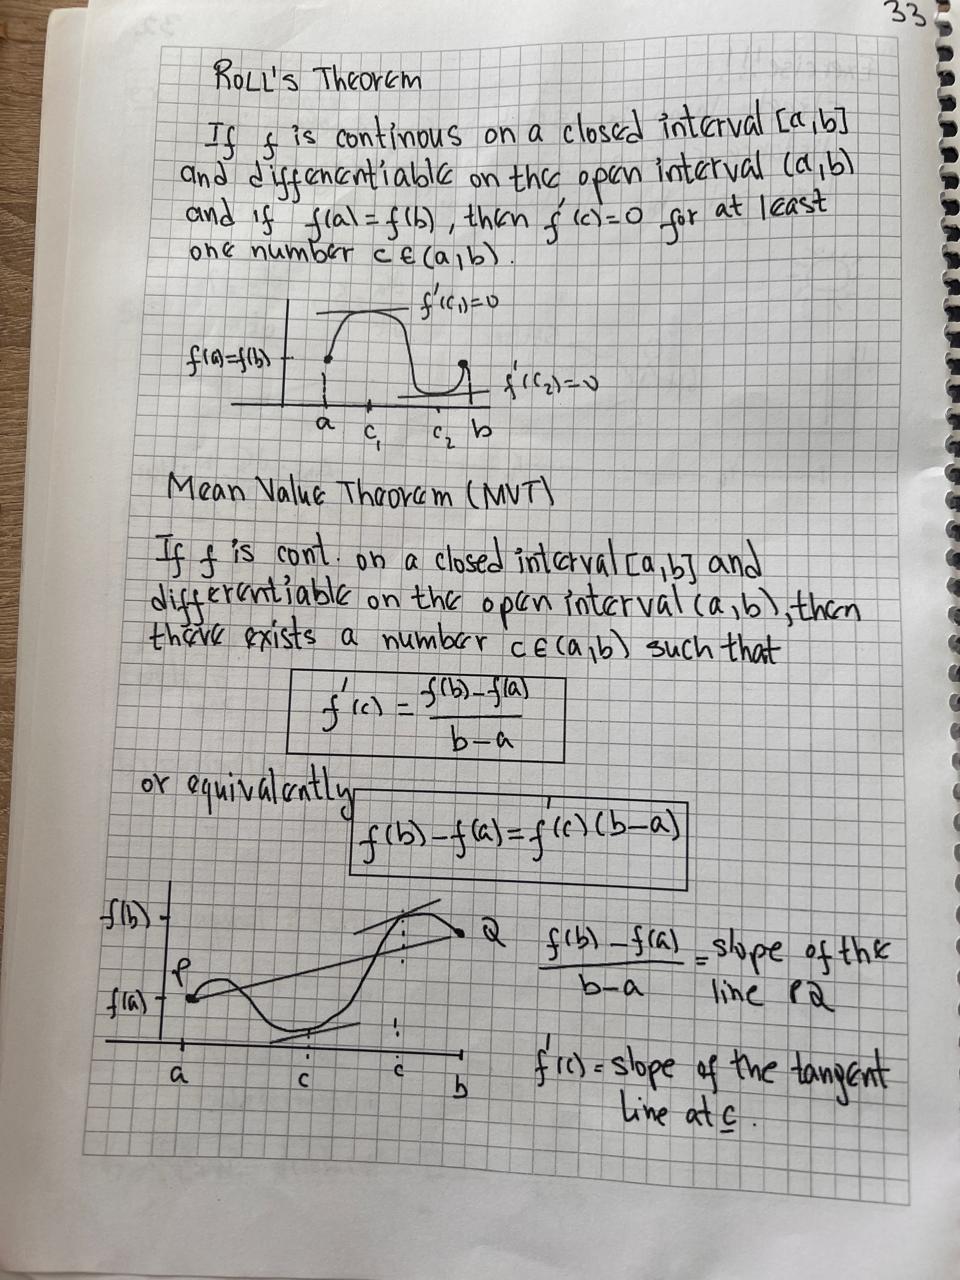 33
Roll's Theorem
If f is continous on a closed interval [a,b]
and differentiable on the open interval (a,b)
and if f(a)=f(b), then f'(c)=0 for at least
one number c∈(a,b).
f'(c₁)=0
f(a)=f(b)
f'(c₂)=0
a c₁ c₂ b
Mean Value Theorem (MVT)
If f is cont. on a closed interval [a,b] and
differentiable on the open interval (a,b), then
there exists a number c∈(a,b) such that
f'(c) = f(b)-f(a)
b-a
or equivalently
f(b)-f(a)=f'(c)(b-a)
f(b) Q
P
f(a)
a c c b
f(b)-f(a) = slope of the
b-a line PQ
f'(c) = slope of the tangent
line at c.